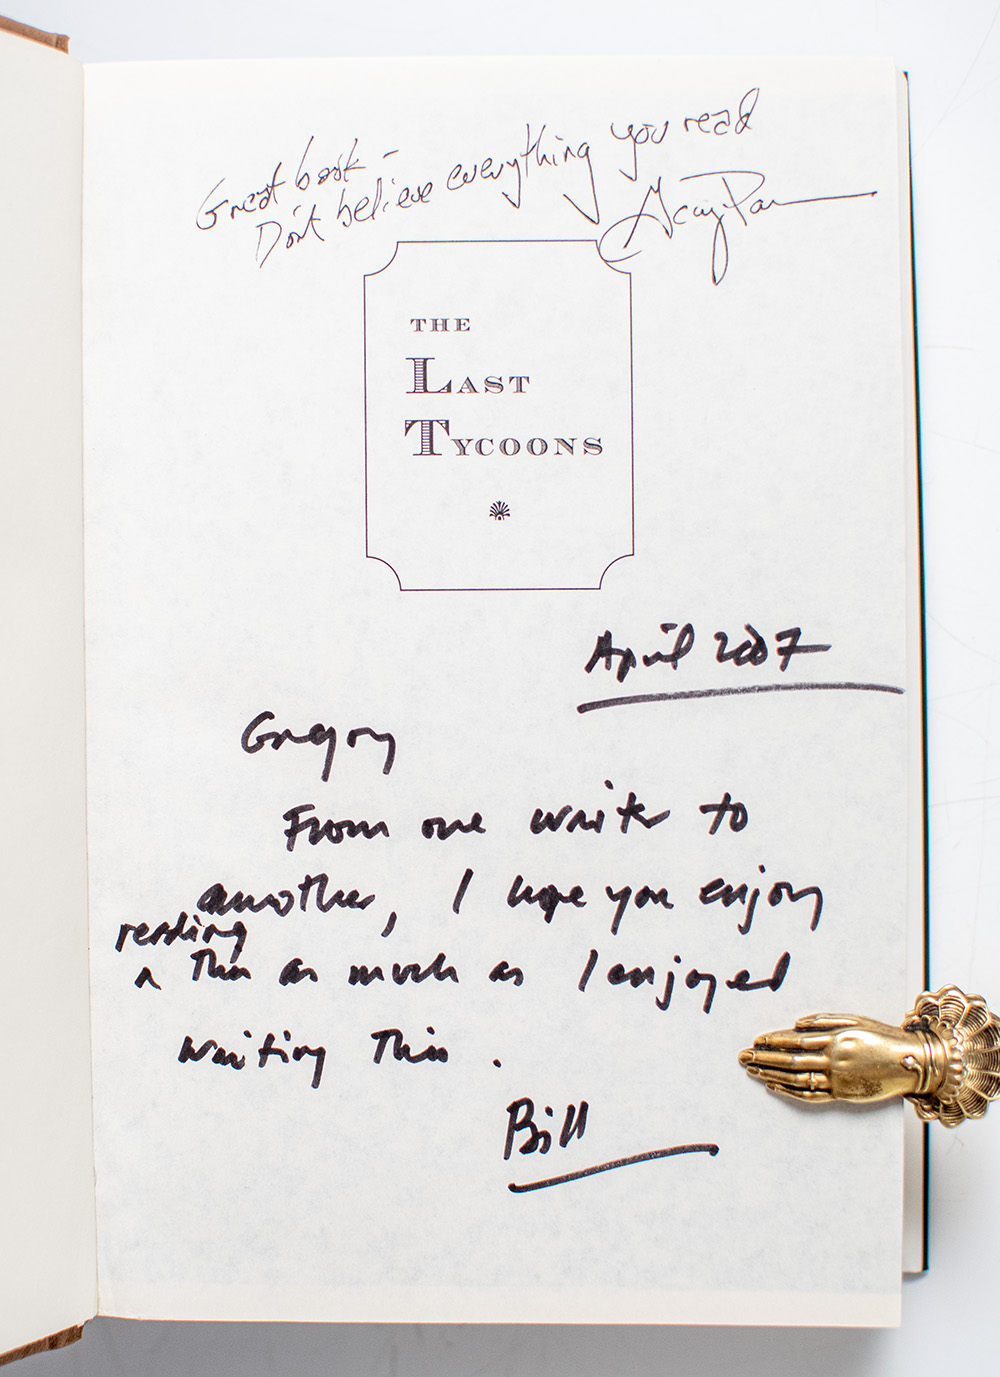 Great book –
Don't believe everything you read
THE
LAST
TYCOONS
April 2007
Gregory
From one writer to
another, I hope you enjoy
reading
^ This as much as I enjoyed
writing This.
Bill